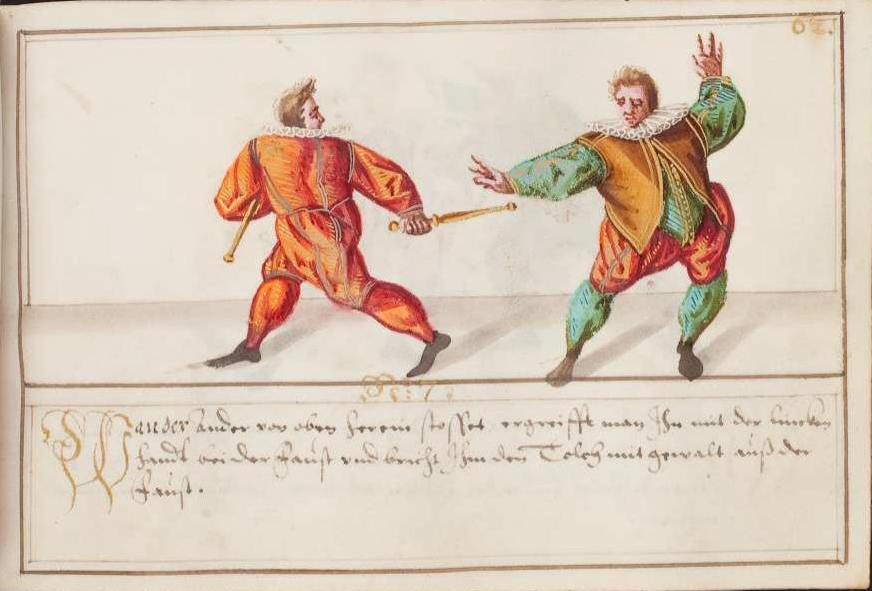 62.
Nº: 7.
Wan der Ander von oben herein stosset, ergreifft man Ihn mit der lincken
handt bei der Faust vnd bricht Ihm den Tolch mit gewalt auß der
Faust.